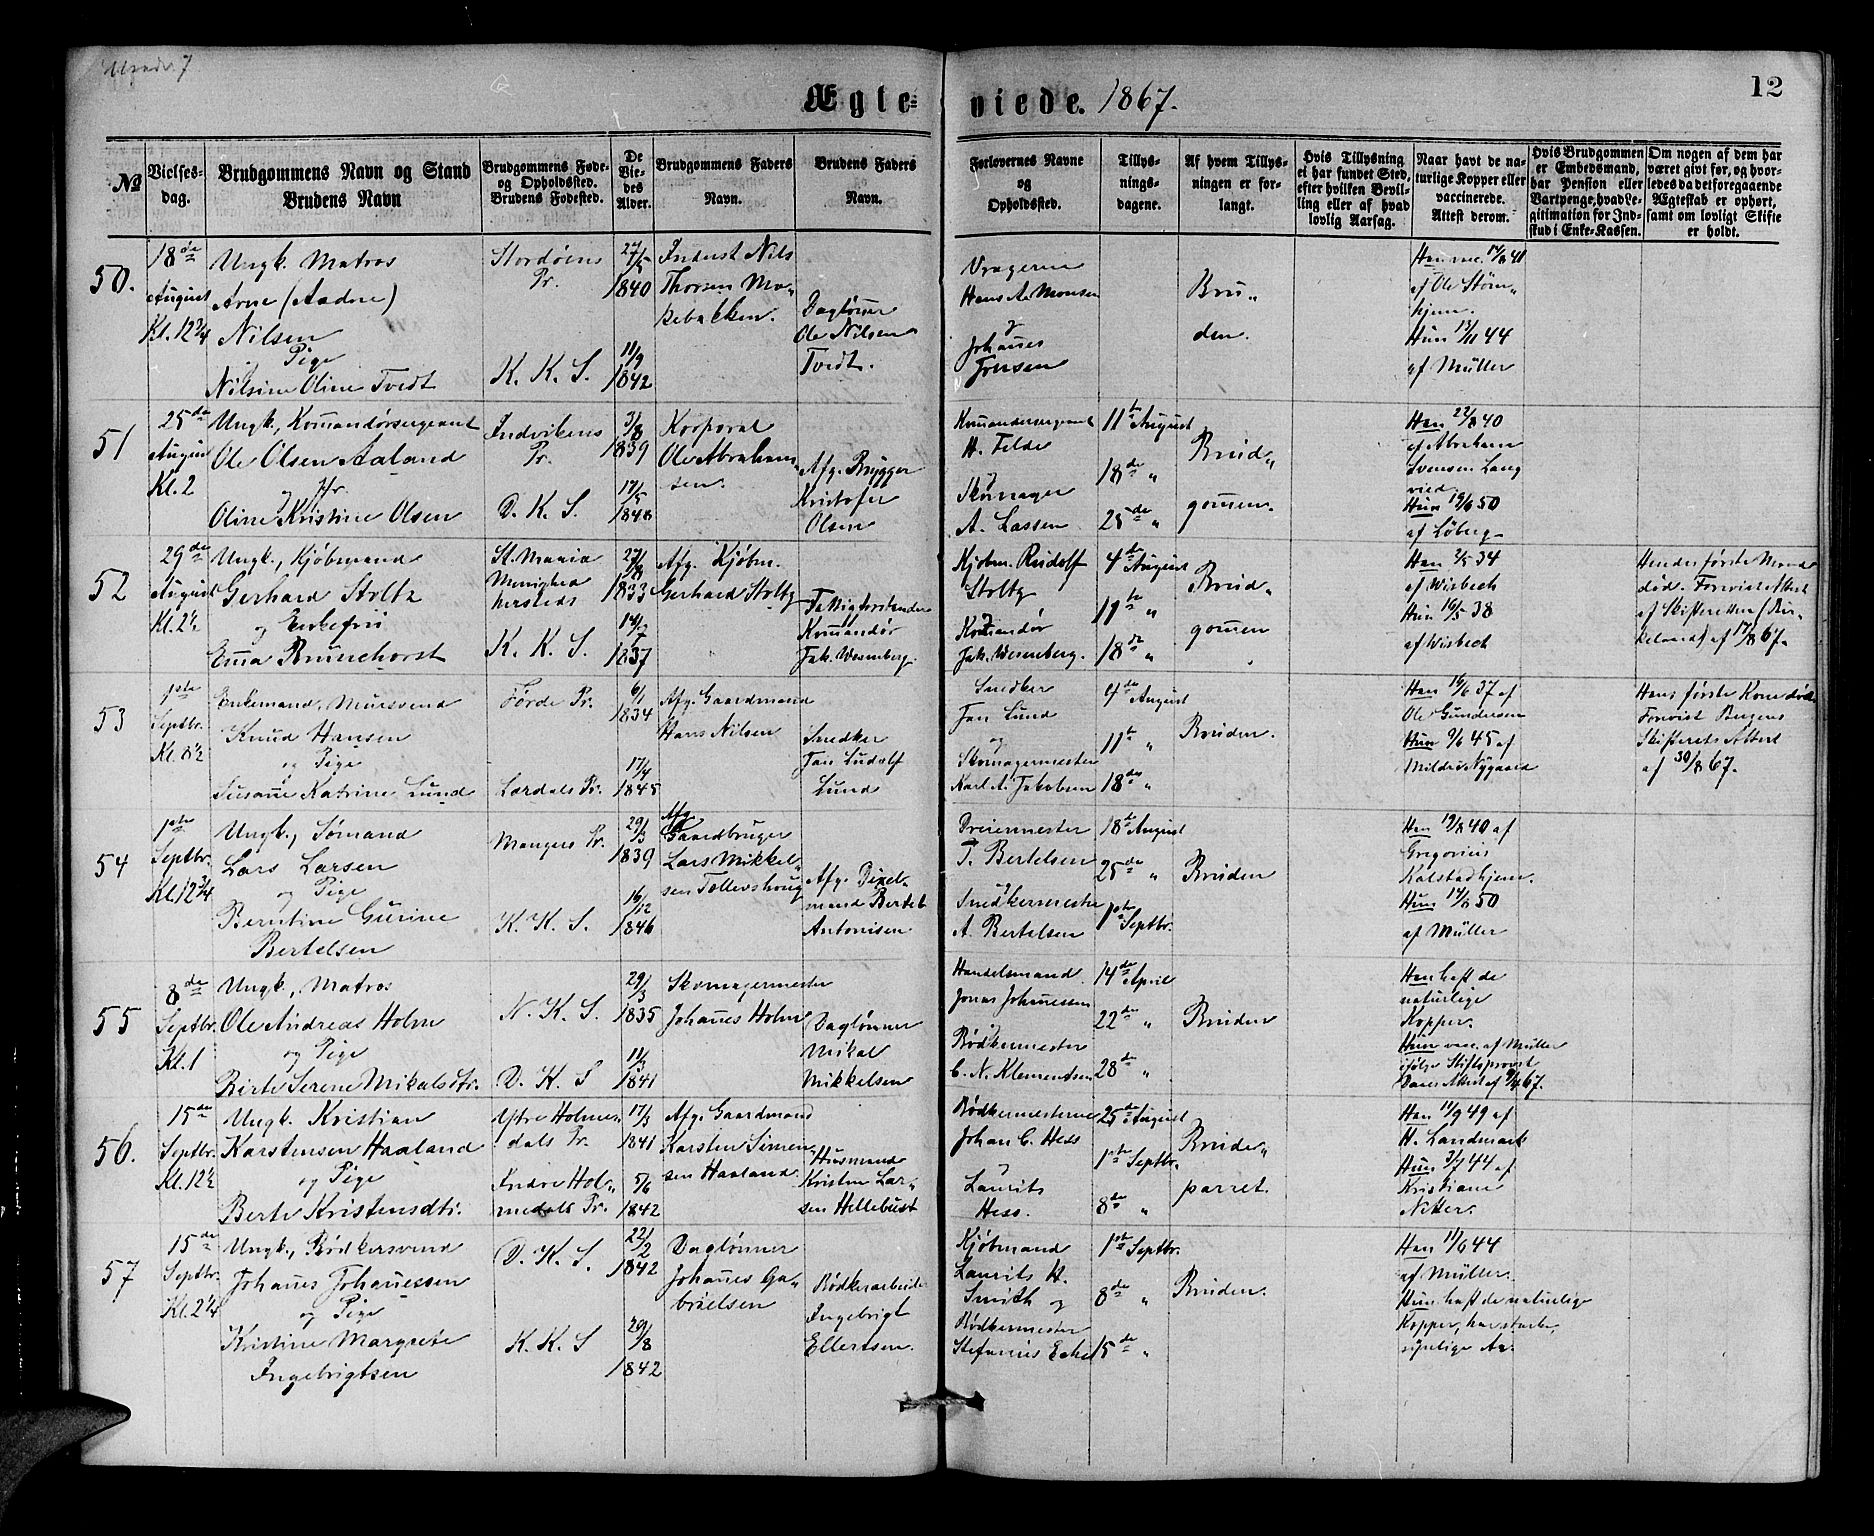 Ægte- viede. 1867.
12
№
Vielses-
dag.
Brudgommens Navn og Stand
Brudens Navn
Brudgommens Føde-
og Opholdssted.
Brudens Fødested.
De
Vie-
des
Alder.
Brudgommens Faders
Navn.
Brudens Faders
Navn.
Forlovernes Navne
og
Opholdssted.
Tillys-
nings-
dagene.
Af hvem Tillys-
ningen er for-
langt.
Hvis Tillysning
ei har fundet Sted,
efter hvilken Bevil-
ling eller af hvad
lovlig Aarsag.
Naar havt de na-
turlige Kopper eller
vaccinerede.
Attest derom.
Hvis Brudgommen
er Embedsmand,
har Pension eller
Vartpenge, hvad Le-
gitimation for Ind-
skud i Enke-Kassen.
Om nogen af dem har
været givt før, og hvor-
ledes da det foregaaende
Ægteskab er ophørt,
samt om lovligt Skifte
er holdt.
50.
18de
August
Kl. 12 3/4
Ungk. Matros
Arne (Aadne)
Nilsen
Pige
Nilsine Oline Tvedt
Stordøens
Pr.
K. K. S.
27/5
1840
11/9
1842
Inderst Nils
Thorsen Mo-
Dagløner
Ole Nilsen
Tvedt.
Vragerne
Hans A. Monsen
og
Johannes
Jonsen
Bru-
den.
Han vac. 17/8 41
af Ole Størn-
hjem.
Hun 13/11 44
af Müller
51
25de
August
Kl. 2
Ungk., Komandørsergeant
Ole Olsen Aaland
og Jfr.
Oline Kristine Olsen
Indvikens
Pr.
D. K. S.
3/8
1839
17/5
1848
Korporal
Ole Abraham-
sen.
Afg. Brygger
Kristofer
Olsen
Komandersergeant
H. Felde
og
Skomager
A. Lassen
11te August
18de "
25de "
Brud-
gomen.
Han 22/8 40
af Abraham
Svensen Lang
vied.
Hun 19/6 50
af Løberg
52
29de
August
Kl. 2 1/2
Ungk., Kjøbmand
Gerhard Stoltz
og Enkefru
Emma Brunchorst
St. Maria
Menighed
K. K. S.
27/8
1833
14/7
1837
Afg. Kjøbm.
Gerhard Stoltz
Fattigforstander
Komandør
Jak. Wesenberg
Kjøbm. Rudolf
Stoltz
og
Komandør
Jak. Wesenberg.
4de August
11te "
18de "
Brud-
gomen
Han 2/5 34
af Wisbech
Hun 16/5 38
af Wisbech
Hendes første Mand
død. Forevist Attest
af Skifteretten i Bir-
keland af 17/8 67.
53
1ste
Septbr.
Kl. 8 1/2
Enkemand, Mursvend
Knud Hansen
og Pige
Susanne Katrine Lund
Førde Pr.
Lærdals Pr.
6/1
1834
17/4
1845
Afg. Gaardmand
Hans Nilsen
Snedker
Jan Ludolf
Lund
Snedker
Jan Lund
og
Skomagermester
Karl A. Jakobsen
4de August
11te "
18de "
Bruden.
Han 16/6 37 af
Ole Gundersen
Hun 9/6 45 af
Milder Nygaard
Hans første Kone død.
Forevist Bergens
Skifterets Attest
af 30/8 67.
54
1ste
Septbr.
Kl. 12 3/4
Ungk., Sømand
Lars Larsen
og Pige
Berntine Gurine
Bertelsen
Mangers Pr.
K. K. S.
29/3
1839
16/12
1846
Afg.
Gaardbruger
Lars Mikkel-
sen Tollevshoug
Afg. Pixel-
mand Bertel
Antonisen
Dreiermester
T. Bertelsen
og
Snedkermester
A. Bertelsen
18de August
25de "
1ste Septbr.
Bruden
Han 19/8 40 af
Gregorius
Kolstadhjem.
Hun 14/8 50
af Müller
55
8de
Septbr.
Kl. 1
Ungk., Matros
Ole Andreas Holm
og Pige
Birte Serene Mikalsdtr.
N. K. S.
D. K. S
29/3
1835
11/3
1841
Skomagermester
Johannes Holm
Dagløner
Mikal
Mikkelsen
Handelsmand
Jonas Johannessen
og
Bødkermester
C. N. Klementsen
14de April
22de "
28de "
Bruden
Han haft de
naturlige
Kopper.
Hun vac. af Müller
ifølge Stiftsprovst
Daaes Attest af 9/4 67.
56.
15de
Septbr.
Kl. 12 1/2
Ungk. Kristian
Karstensen Haaland
og Pige
Berte Kristensdtr.
Ytre Holmen-
dals Pr.
Indre Hol-
medals Pr.
17/3
1841
5/6
1842
Afg. Gaardmand
Karsten Simen-
sen Haaland
Husmand
Kristen Lar-
sen Hellebust
Bødkermesterne
Johan C. Hess
og
Laurits
Hess.
25de August
1ste Septbr.
8de "
Brude-
parret.
Han 11/9 49 af
H. Landmark
Hun 3/7 44 af
Kristiane
Nitter.
57
15de
Septbr.
Kl. 2 1/4
Ungk., Bødkersvend
Johannes Johannessen
og Pige
Kristine Margrete
Ingebrigtsen
D. K. S.
K. K. S
22/2
1842
29/8
1842
Dagløner
Johannes Ga-
brielsen
Bødkerarbeider
Ingebrigt
Ellertsen.
Kjøbmand
Laurits H.
Smith og
Bødkermester
Stefanius Eche
1ste Septbr.
8de "
15de "
Bruden.
Han 11/6 44
af Müller.
Hun haft de naturlige
Kopper, har stærke,
synlige Ar.